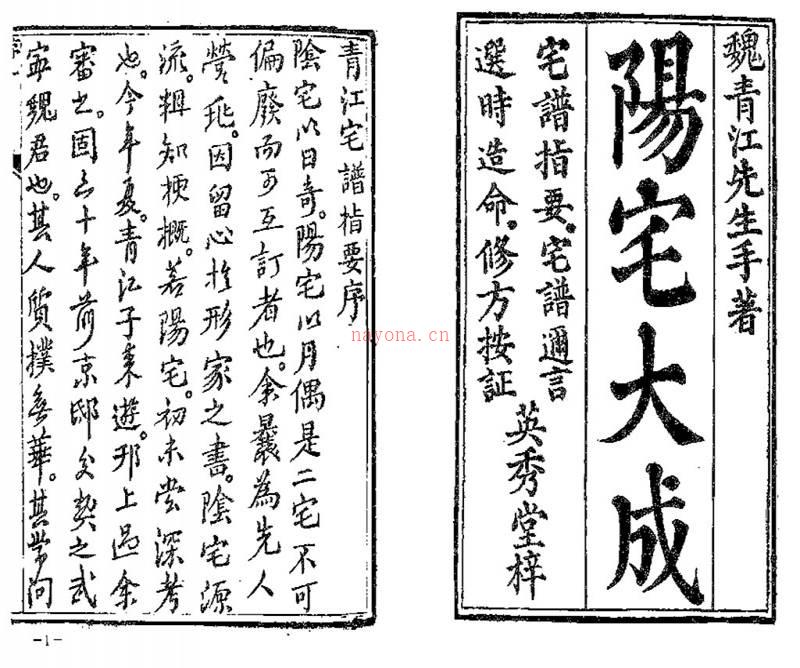 魏青江先生手著
陽宅大成
宅譜指要。宅譜邇言
選時造命。修方按証
英秀堂梓
青江宅譜指要序
陰宅以日奇。陽宅以月偶是二宅不可
偏廢而可互訂者也。余曩為先人
營兆。因留心於形家之書。陰宅源
流。輯知梗概。若陽宅。初未尝深考
也。今年夏。青江子来遊。邗上過余
審之。固三十年前京邸久契之武
寍魏君也。其人質撲無華。其学问
nayona.cn
-1-